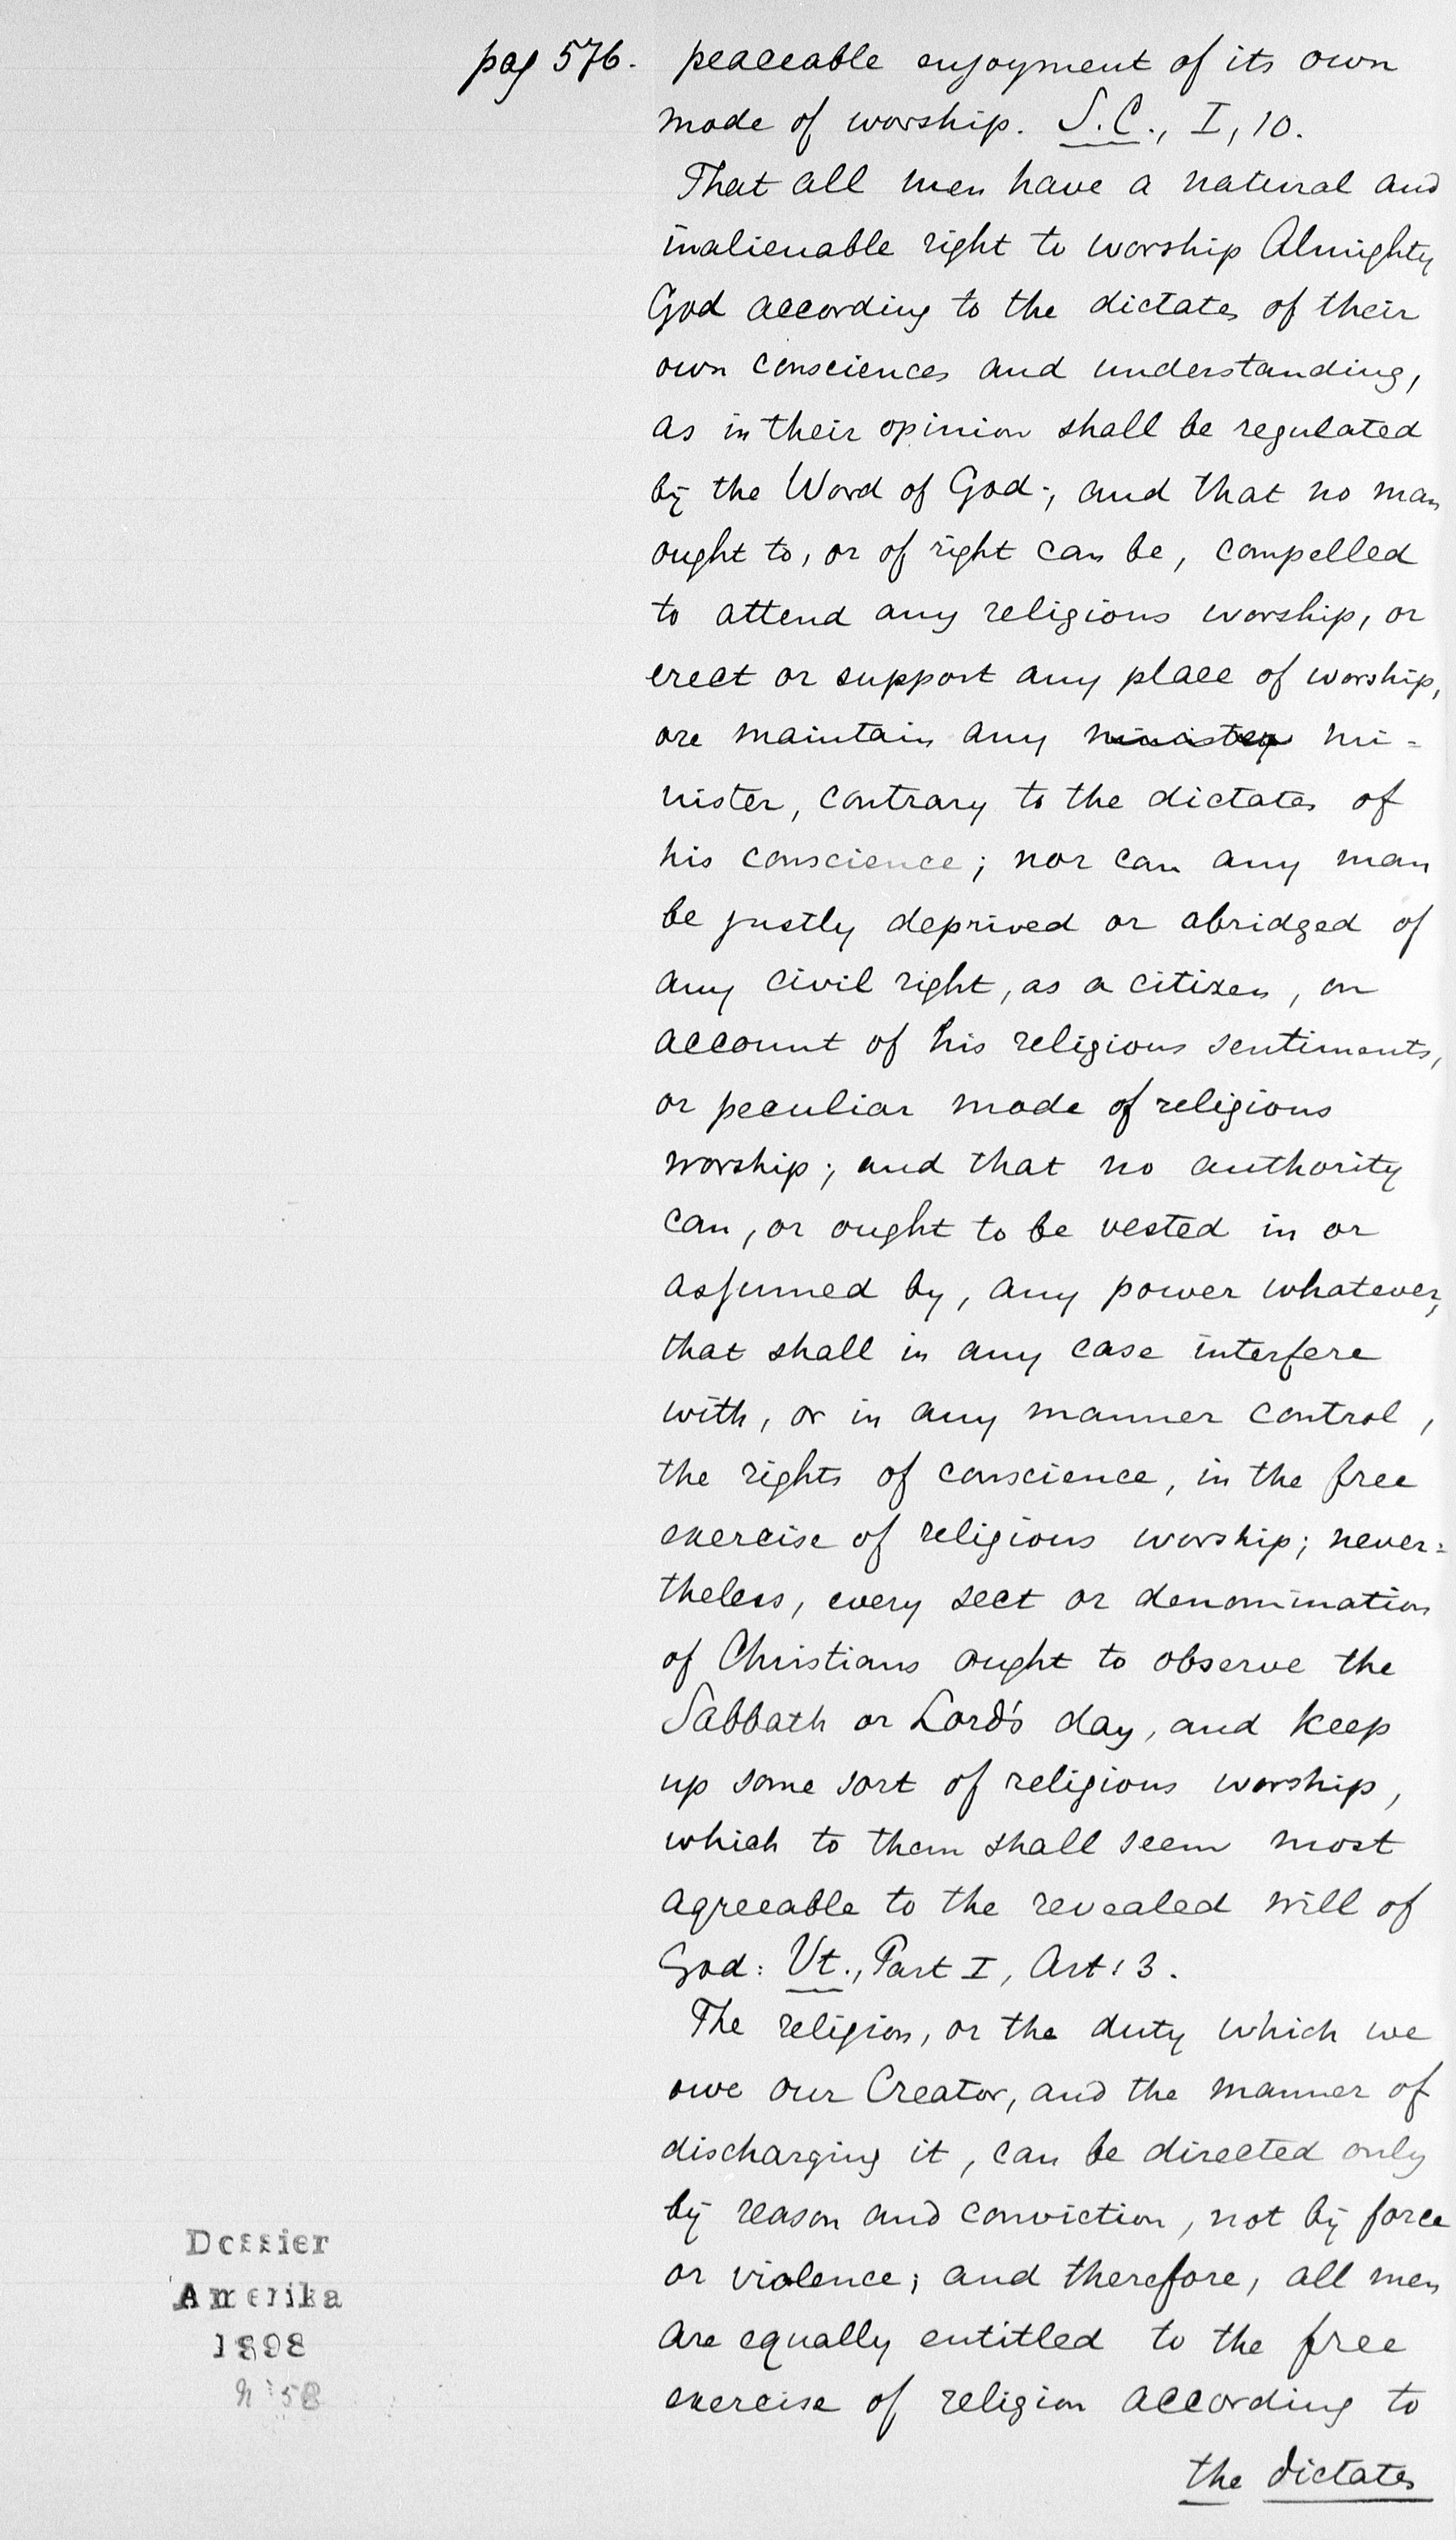 pag 576. peaceable enjoyment of its own
mode of worship. S.C., I, 10.
That all men have a natural and
inalienable right to worship Almighty
God according to the dictates of their
own consciences and understanding,
as in their opinion shall be regulated
by the Word of God; and that no man
ought to, or of right can be, compelled
to attend any religious worship, or
erect or support any place of worship,
ore maintain any minister mi-
nister, contrary to the dictates of
his conscience; nor can any man
be justly deprived or abridged of
any civil right, as a citizen, on
account of his religious sentiments,
or peculiar mode of religious
worship; and that no authority
can, or ought to be vested in or
assumed by, any power whatever,
that shall in any case interfere
with, or in any manner control,
the rights of conscience, in the free
exercise of religious worship; never=
theless, every sect or denomination
of Christians ought to observe the
Sabbath or Lord's day, and keep
up some sort of religious worship,
which to them shall seem most
agreeable to the revealed will of
God: Vt., Part I, Art: 3.
The religion, or the duty which we
owe our Creator, and the manner of
discharging it, can be directed only
by reason and conviction, not by force
or violence; and therefore, all men
are equally entitled to the free
exercise of religion according to
the dictates
Dossier
Amerika
1898